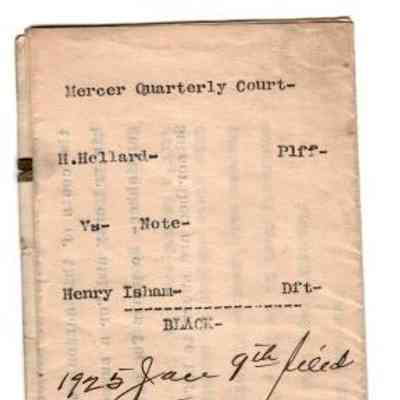 Mercer Quarterly Court-
H.Hellard- Plff-
Vs- Note-
Henry Isham- Dft-
BLACK-
1925 Jan 9th filed